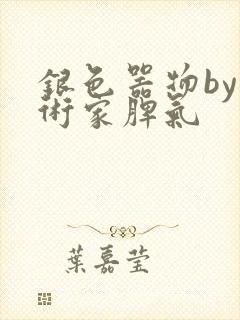 銀色器物by
術家脾氣
葉嘉莹